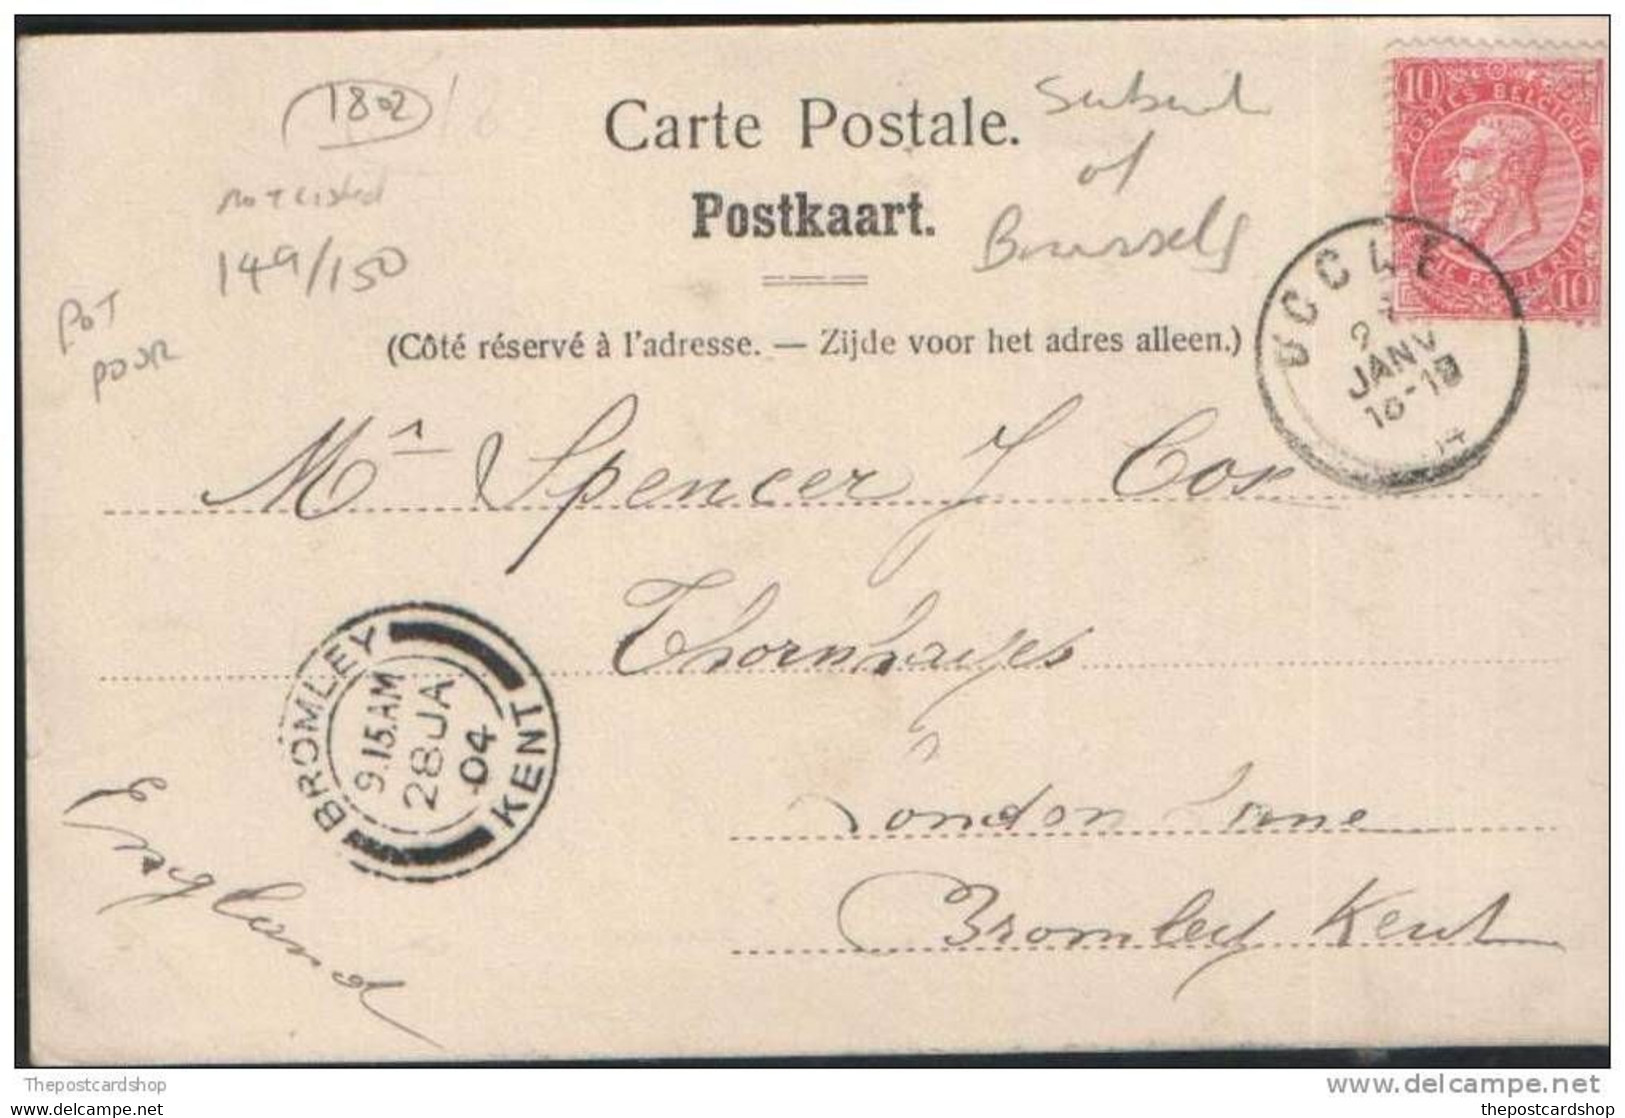 1802
Carte Postale.
Suburb
of
Brussels
Postkaart.
not Listed
149/150
POT
POUR
(Côté réservé à l'adresse. — Zijde voor het adres alleen.)
10
POSTES BELGIQUE
10
UCCLE
JANV
04
Mr Spencer J Cox
Thornhayes
London Lane
Bromley Kent
England
BROMLEY
KENT
9.15.AM
28 JA
04
Thepostcardshop
www.delcampe.net
thepostcardshop
thepostcardshop